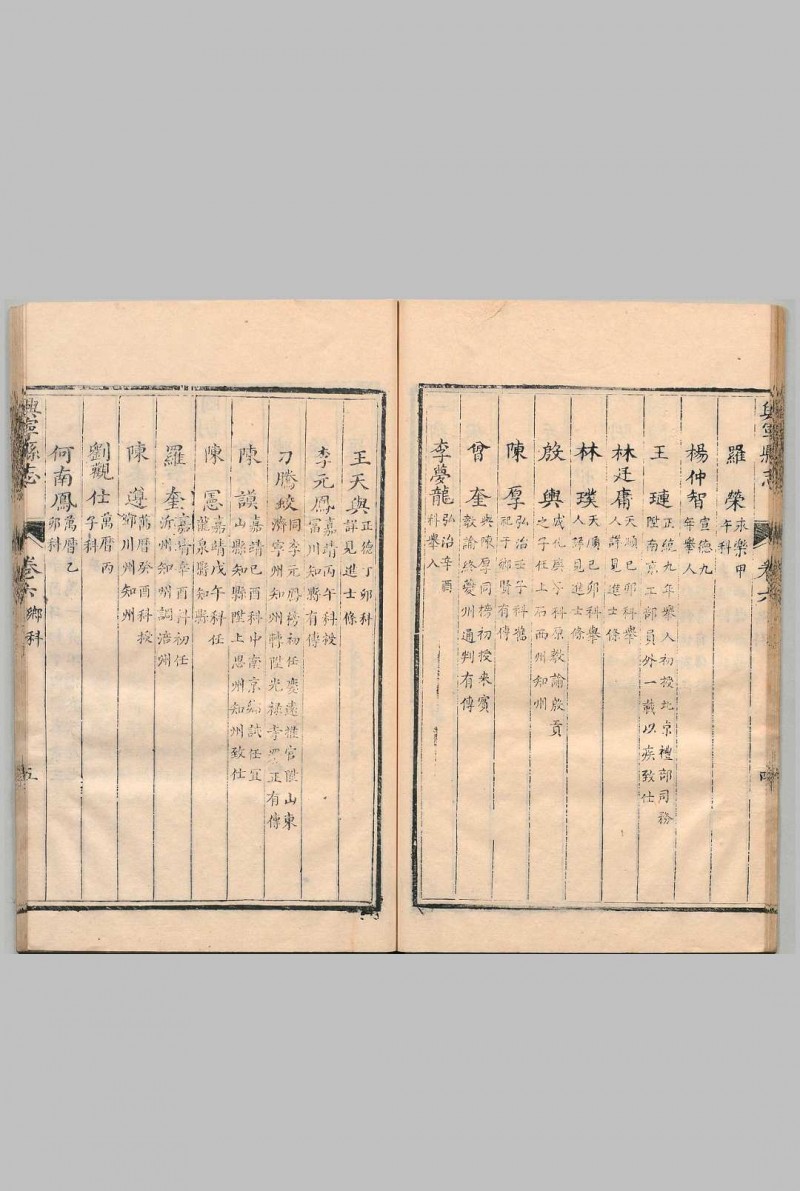 興寧縣志 卷六 四
羅榮 永樂甲午科
楊仲智 宣德九年舉人
王璉 正統九年舉人初授北京禮部司務陞南京工部員外一載以疾致仕
林廷庸 天順己卯科舉人詳見進士條
林璞 天順己卯科舉人詳見進士條
殷輿 成化庚子科原教諭殷貢之子任上石西州知州
陳厚 弘治壬子科舊祀于鄉賢有傳
曾奎 與陳厚同榜初授來賓教諭終夔州通判有傳
李夢龍 弘治辛酉科舉人
王天與 正德丁卯科詳見進士條
李元鳳 嘉靖丙午科授富川知縣有傳
刁騰蛟 同李元鳳榜初任慶遠推官陞山東濟寧州知州轉陞光祿寺署正有傳
陳謨 嘉靖己酉科中南京鄉試任宜山縣知縣陞上思州知州致仕
陳憲 嘉靖戊午科任龍泉縣知縣
羅奎 嘉靖辛酉科初任沂州知州調治州
陳遵 萬曆癸酉科授鄧川州知州
劉觀仕 萬曆丙子科
何南鳳 萬曆乙卯科
興寧縣志 卷六 鄉科 五